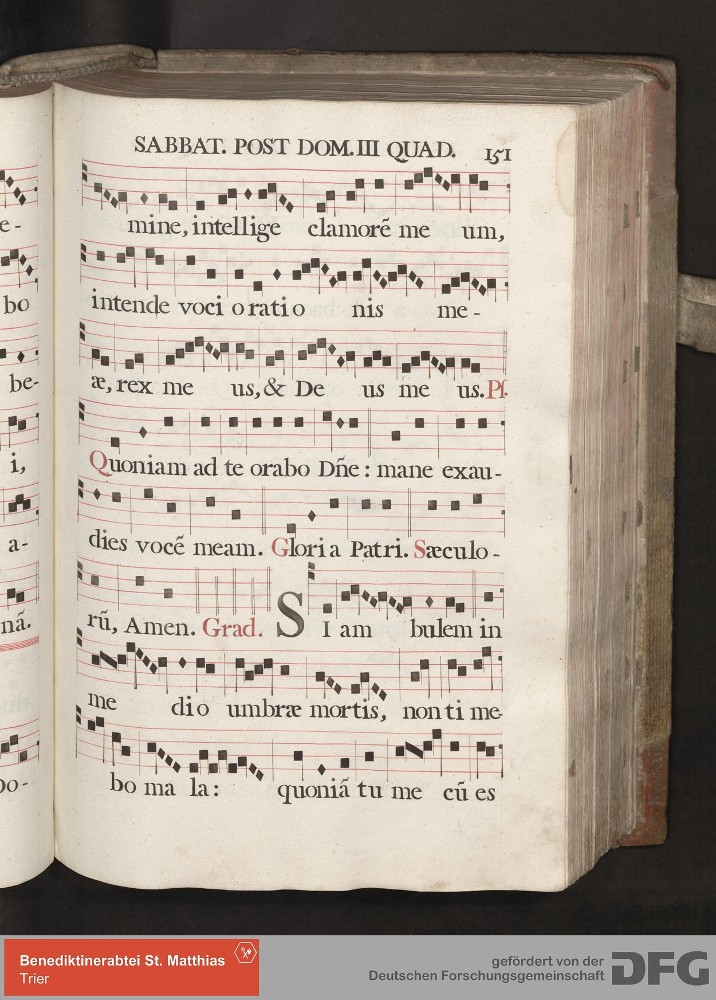 SABBAT. POST DOM. III QUAD. 151
e- mine, intellige clamorẽ me um,
bo intende voci o rati o nis me-
be- æ, rex me us, & De us me us. Pſ.
i, Quoniam ad te orabo Dñe: mane exau-
a- dies vocẽ meam. Glori a Patri. Sæculo-
nã. rũ, Amen. Grad. S I am bulem in
me dio umbræ mortis, non ti me-
bo- bo ma la: quoniã tu me cũ es
Benediktinerabtei St. Matthias
Trier
gefördert von der
Deutschen Forschungsgemeinschaft
DFG